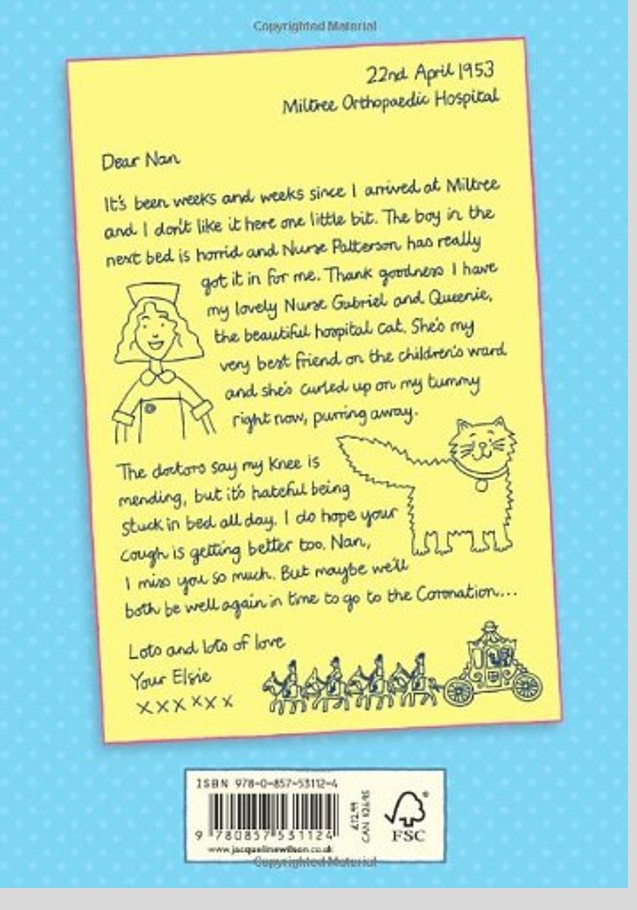 Copyrighted Material
22nd April 1953
Miltree Orthopaedic Hospital
Dear Nan
It's been weeks and weeks since I arrived at Miltree
and I don't like it here one little bit. The boy in the
next bed is horrid and Nurse Patterson has really
got it in for me. Thank goodness I have
my lovely Nurse Gabriel and Queenie,
the beautiful hospital cat. She's my
very best friend on the children's ward
and she's curled up on my tummy
right now, purring away.
The doctors say my knee is
mending, but it's hateful being
stuck in bed all day. I do hope your
cough is getting better too. Nan,
I miss you so much. But maybe we'll
both be well again in time to go to the Coronation...
Lots and lots of love
Your Elsie
x x x x x x
ISBN 978-0-857-53112-4
9 780857 531124
£12.99
CAN $26.95
FSC
®
www.jacquelinewilson.co.uk
Copyrighted Material